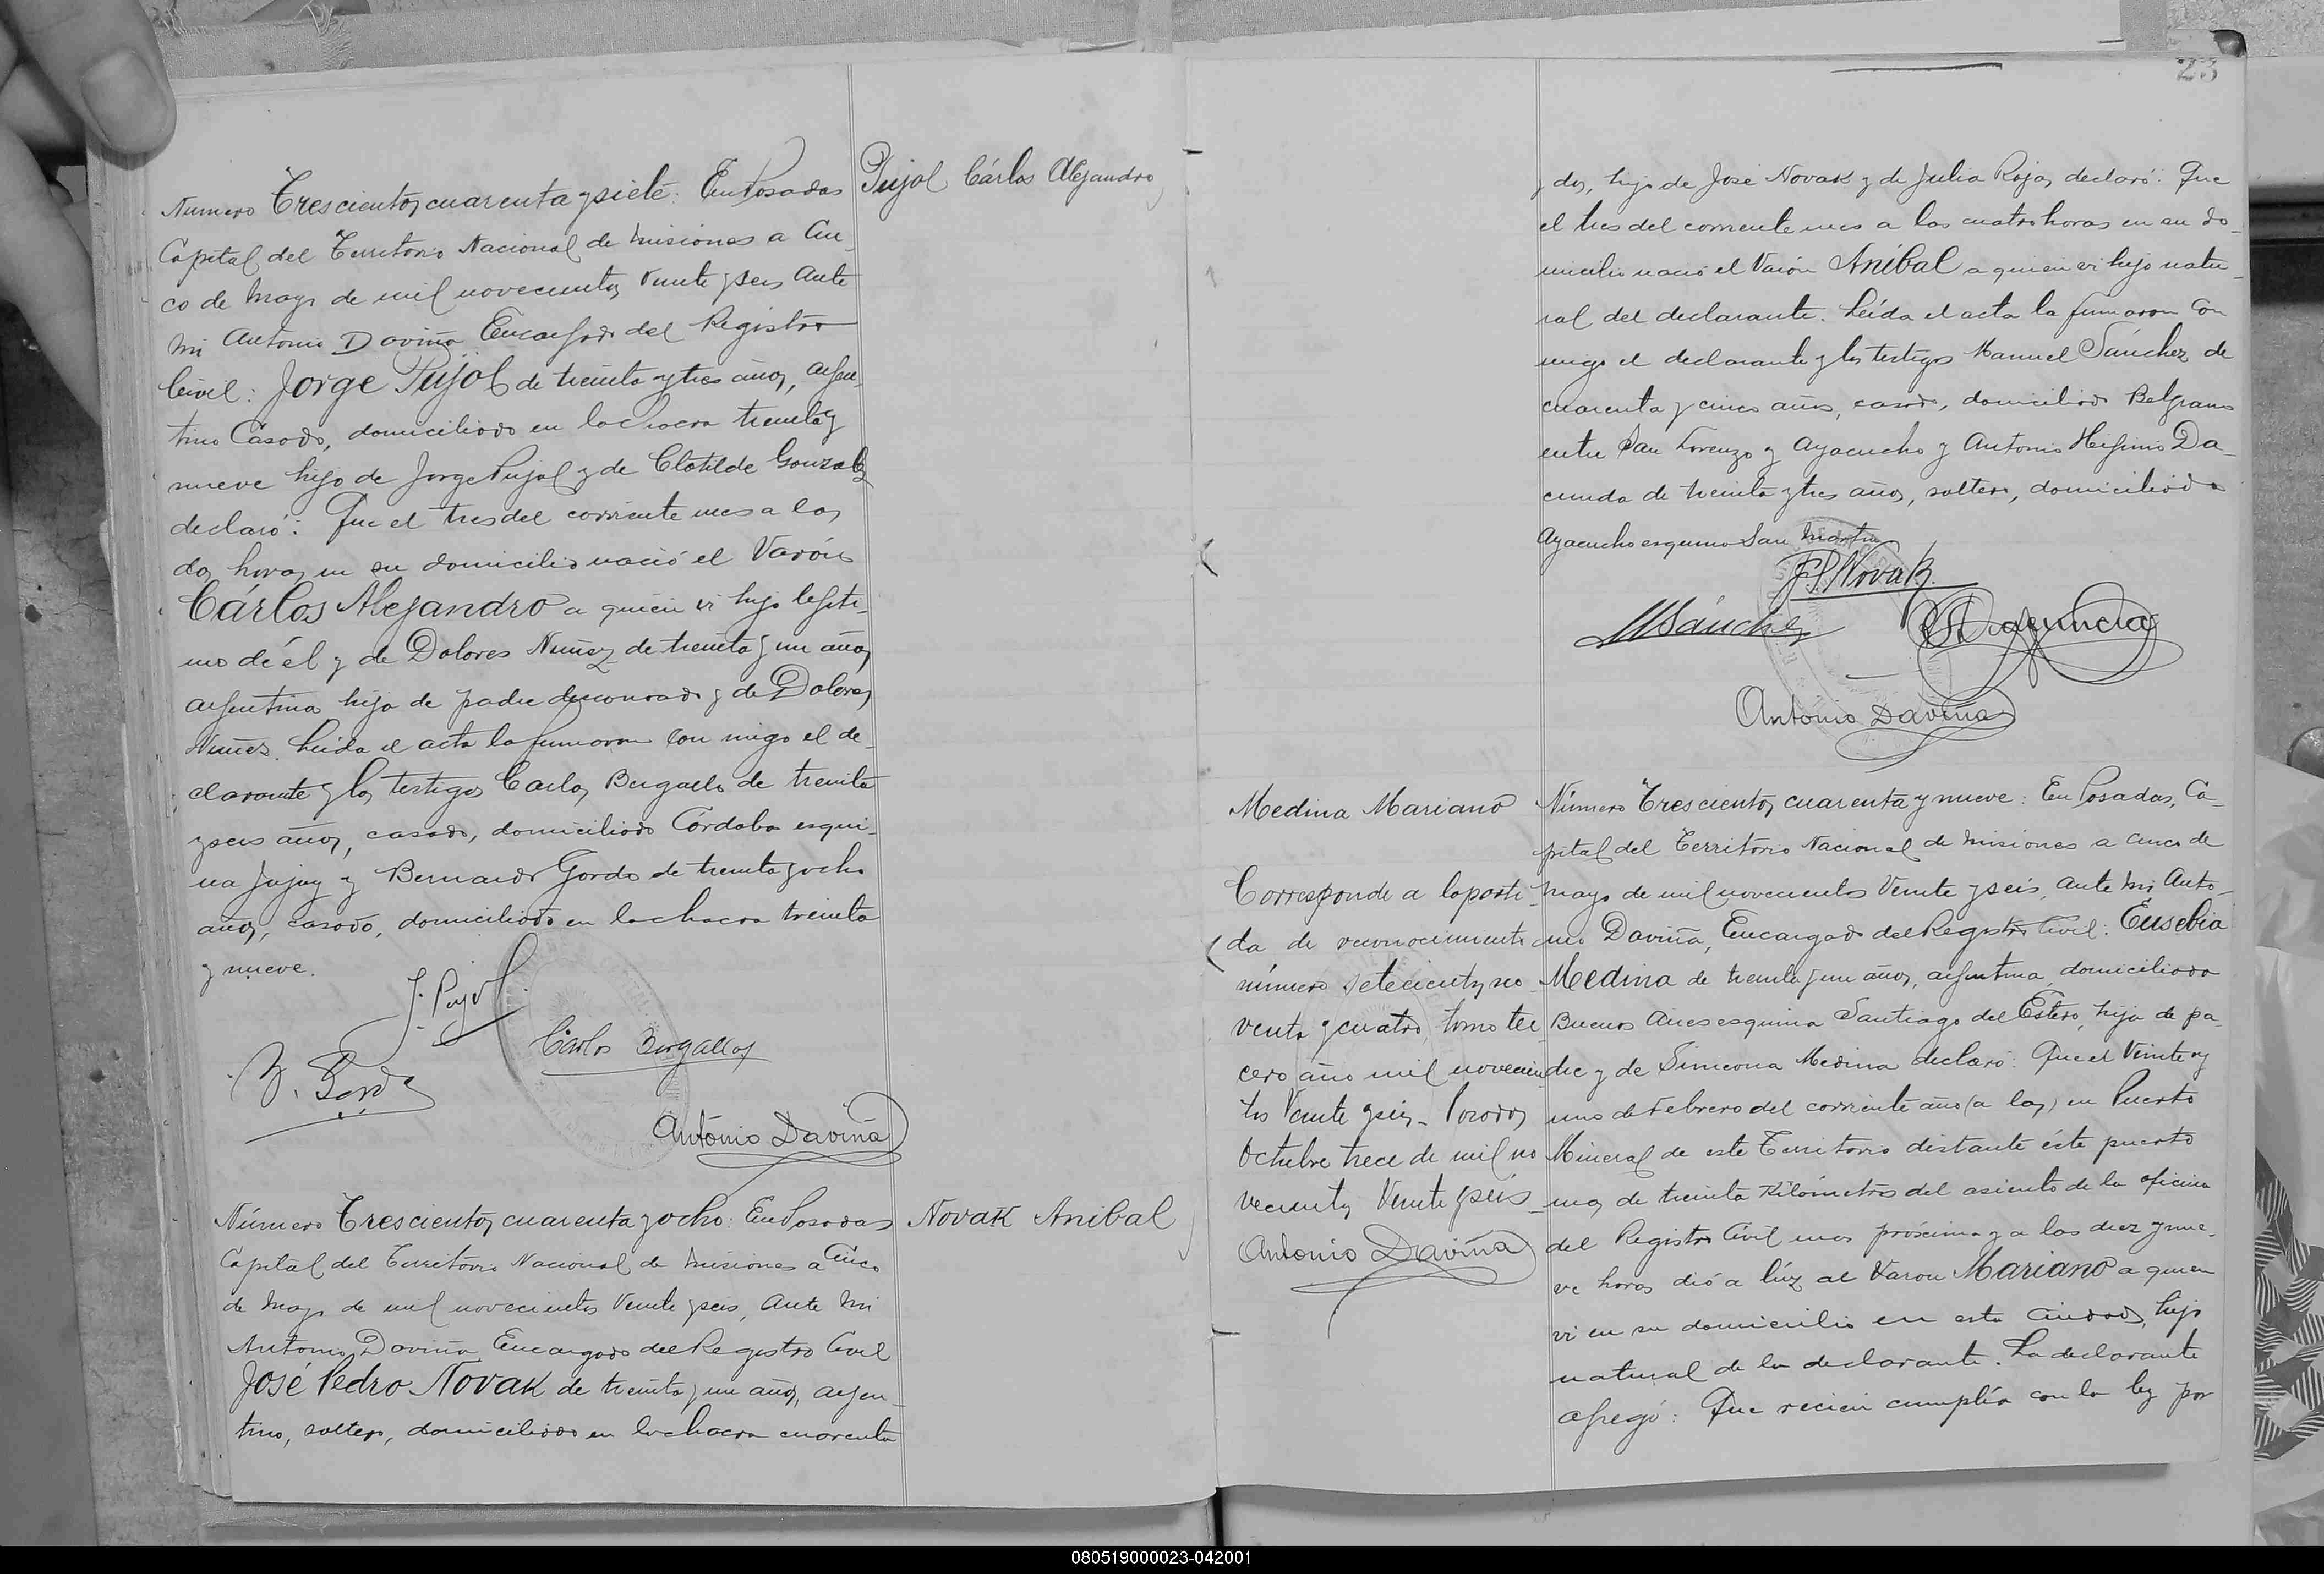 Pujol Cárlos Alejandro
Número Trescientos cuarenta y siete: En Posadas
Capital del Territorio Nacional de Misiones a Cin-
co de Mayo de mil novecientos veinte y seis Ante
mi Antonio Daviña Encargado del Registro
Civil: Jorge Pujol de treinta y tres años, argen-
tino Casado, domiciliado en la Chacra treinta y
nueve hijo de Jorge Pujol y de Clotilde Gonzalez
declaró: Que el tres del corriente mes a las
dos horas en su domicilio nació el Varón
Cárlos Alejandro a quien vi hijo legíti-
mo de él y de Dolores Nuñez de treinta y un años,
argentina hija de padre desconocido y de Dolores
Nuñez. Leída el acta la firmaron con migo el de-
clarante y los testigos Carlos Bergallo de treinta
y seis años, casado, domiciliado Córdoba esqui-
na Jujuy y Bernardo Gordo de treinta y ocho
años, casado, domiciliado en la chacra treinta
y nueve.
J. Pujol
Carlos Bergallo
B. Gordo
Antonio Daviña
Novak Anibal
Número Trescientos cuarenta y ocho: En Posadas
Capital del Territorio Nacional de Misiones a Cinco
de Mayo de mil novecientos Veinte y seis, Ante Mi
Antonio Daviña Encargado del Registro Civil
José Pedro Novak de treinta y un años, argen-
tino, soltero, domiciliado en la chacra cuarenta
23
y dos, hijo de José Novak y de Julia Rojas, declaró: Que
el tres del corriente mes a las cuatro horas en su do-
micilio nació el Varón Aníbal a quien vi hijo natu-
ral del declarante. Leída el acta la firmaron con
migo el declarante y los testigos Manuel Sánchez de
cuarenta y cinco años, casado, domiciliado Belgrano
entre San Lorenzo y Ayacucho y Antonio Higinio Da-
cunda de treinta y tres años, soltero, domiciliado
Ayacucho esquina San Martin
J. P. Novak
M Sánchez
Antonio Daviña
Medina Mariano
Corresponde a la parti-
da de reconocimiento
número setecientos no-
venta y cuatro, tomo ter-
cero año mil novecien-
tos Veinte y seis. Posadas
Octubre trece de mil no
vecientos Veinte y seis
Antonio Daviña
Número Trescientos cuarenta y nueve: En Posadas, Ca-
pital del Territorio Nacional de Misiones a cinco de
Mayo de mil novecientos Veinte y seis, Ante Mi Anto-
nio Daviña, Encargado del Registro Civil: Eusebia
Medina de treinta y un años, argentina, domiciliada
Buenos Aires esquina Santiago del Estero, hija de pa-
dre y de Simeona Medina declaró: Que el Veinte y
uno de Febrero del corriente año (a las) en Puerto
Mineral de este Territorio distante éste puerto
mas de treinta Kilómetros del asiento de la oficina
del Registro Civil mas próxima y a las diez y nue-
ve horas dió a lúz al Varon Mariano a quien
vi en su domicilio en esta Ciudad, hijo
natural de la declarante. La declarante
agregó: Que recien cumplía con la ley por
080519000023-042001